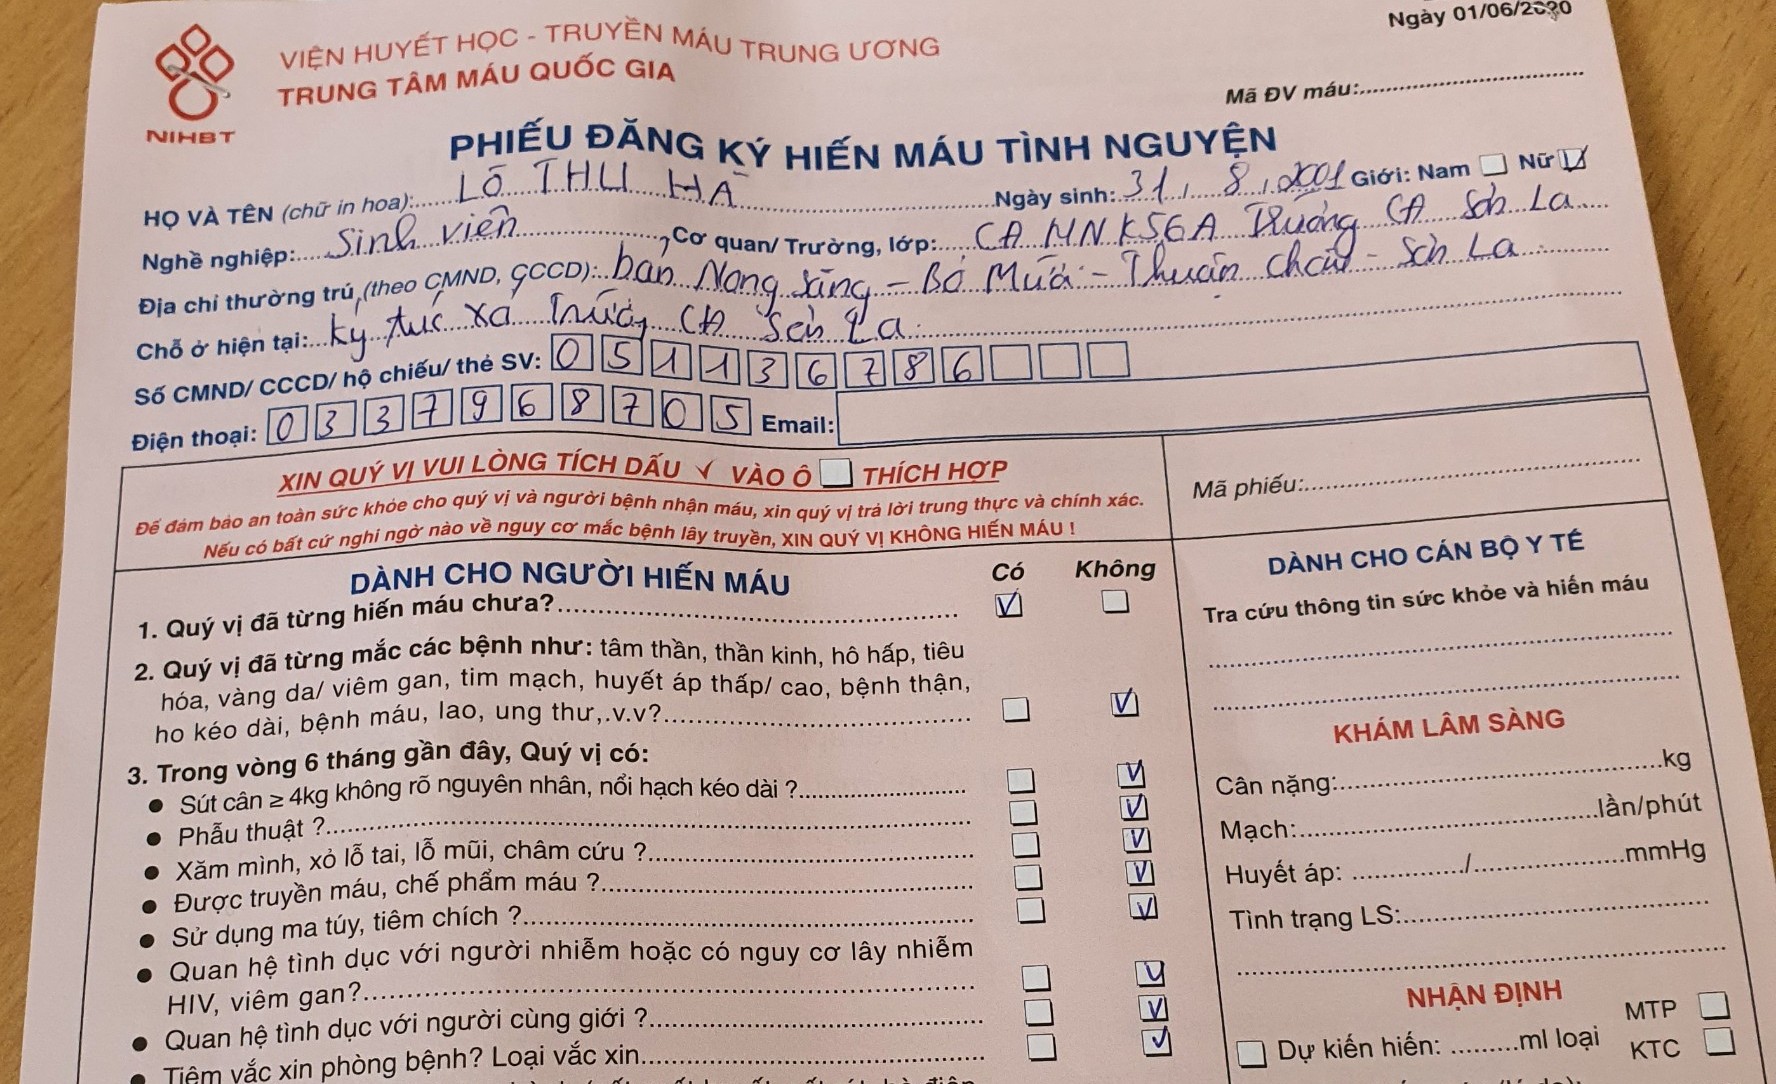 Ngày 01/06/2020
VIỆN HUYẾT HỌC - TRUYỀN MÁU TRUNG ƯƠNG
TRUNG TÂM MÁU QUỐC GIA
NIHBT
Mã ĐV máu:
PHIẾU ĐĂNG KÝ HIẾN MÁU TÌNH NGUYỆN
HỌ VÀ TÊN (chữ in hoa): LÒ THU HÀ Ngày sinh: 31, 8, 2001 Giới: Nam Nữ
Nghề nghiệp: Sinh viên Cơ quan/ Trường, lớp: CĐ MN K56A Trường CĐ Sơn La
Địa chỉ thường trú (theo CMND, CCCD): bản Nong Sàng - Bó Mười - Thuận Châu - Sơn La
Chỗ ở hiện tại: Ký túc xá Trường CĐ Sơn La
Số CMND/ CCCD/ hộ chiếu/ thẻ SV: 051136786
Điện thoại: 0337968705 Email:
XIN QUÝ VỊ VUI LÒNG TÍCH DẤU √ VÀO Ô THÍCH HỢP
Để đảm bảo an toàn sức khỏe cho quý vị và người bệnh nhận máu, xin quý vị trả lời trung thực và chính xác.
Nếu có bất cứ nghi ngờ nào về nguy cơ mắc bệnh lây truyền, XIN QUÝ VỊ KHÔNG HIẾN MÁU !
Mã phiếu:
DÀNH CHO NGƯỜI HIẾN MÁU Có Không
1. Quý vị đã từng hiến máu chưa?
2. Quý vị đã từng mắc các bệnh như: tâm thần, thần kinh, hô hấp, tiêu
hóa, vàng da/ viêm gan, tim mạch, huyết áp thấp/ cao, bệnh thận,
ho kéo dài, bệnh máu, lao, ung thư,.v.v?
3. Trong vòng 6 tháng gần đây, Quý vị có:
● Sút cân ≥ 4kg không rõ nguyên nhân, nổi hạch kéo dài ?
● Phẫu thuật ?
● Xăm mình, xỏ lỗ tai, lỗ mũi, châm cứu ?
● Được truyền máu, chế phẩm máu ?
● Sử dụng ma túy, tiêm chích ?
● Quan hệ tình dục với người nhiễm hoặc có nguy cơ lây nhiễm
HIV, viêm gan?
● Quan hệ tình dục với người cùng giới ?
● Tiêm vắc xin phòng bệnh? Loại vắc xin
DÀNH CHO CÁN BỘ Y TẾ
Tra cứu thông tin sức khỏe và hiến máu
KHÁM LÂM SÀNG
Cân nặng: kg
Mạch: lần/phút
Huyết áp: / mmHg
Tình trạng LS:
NHẬN ĐỊNH
MTP
Dự kiến hiến: ml loại
KTC